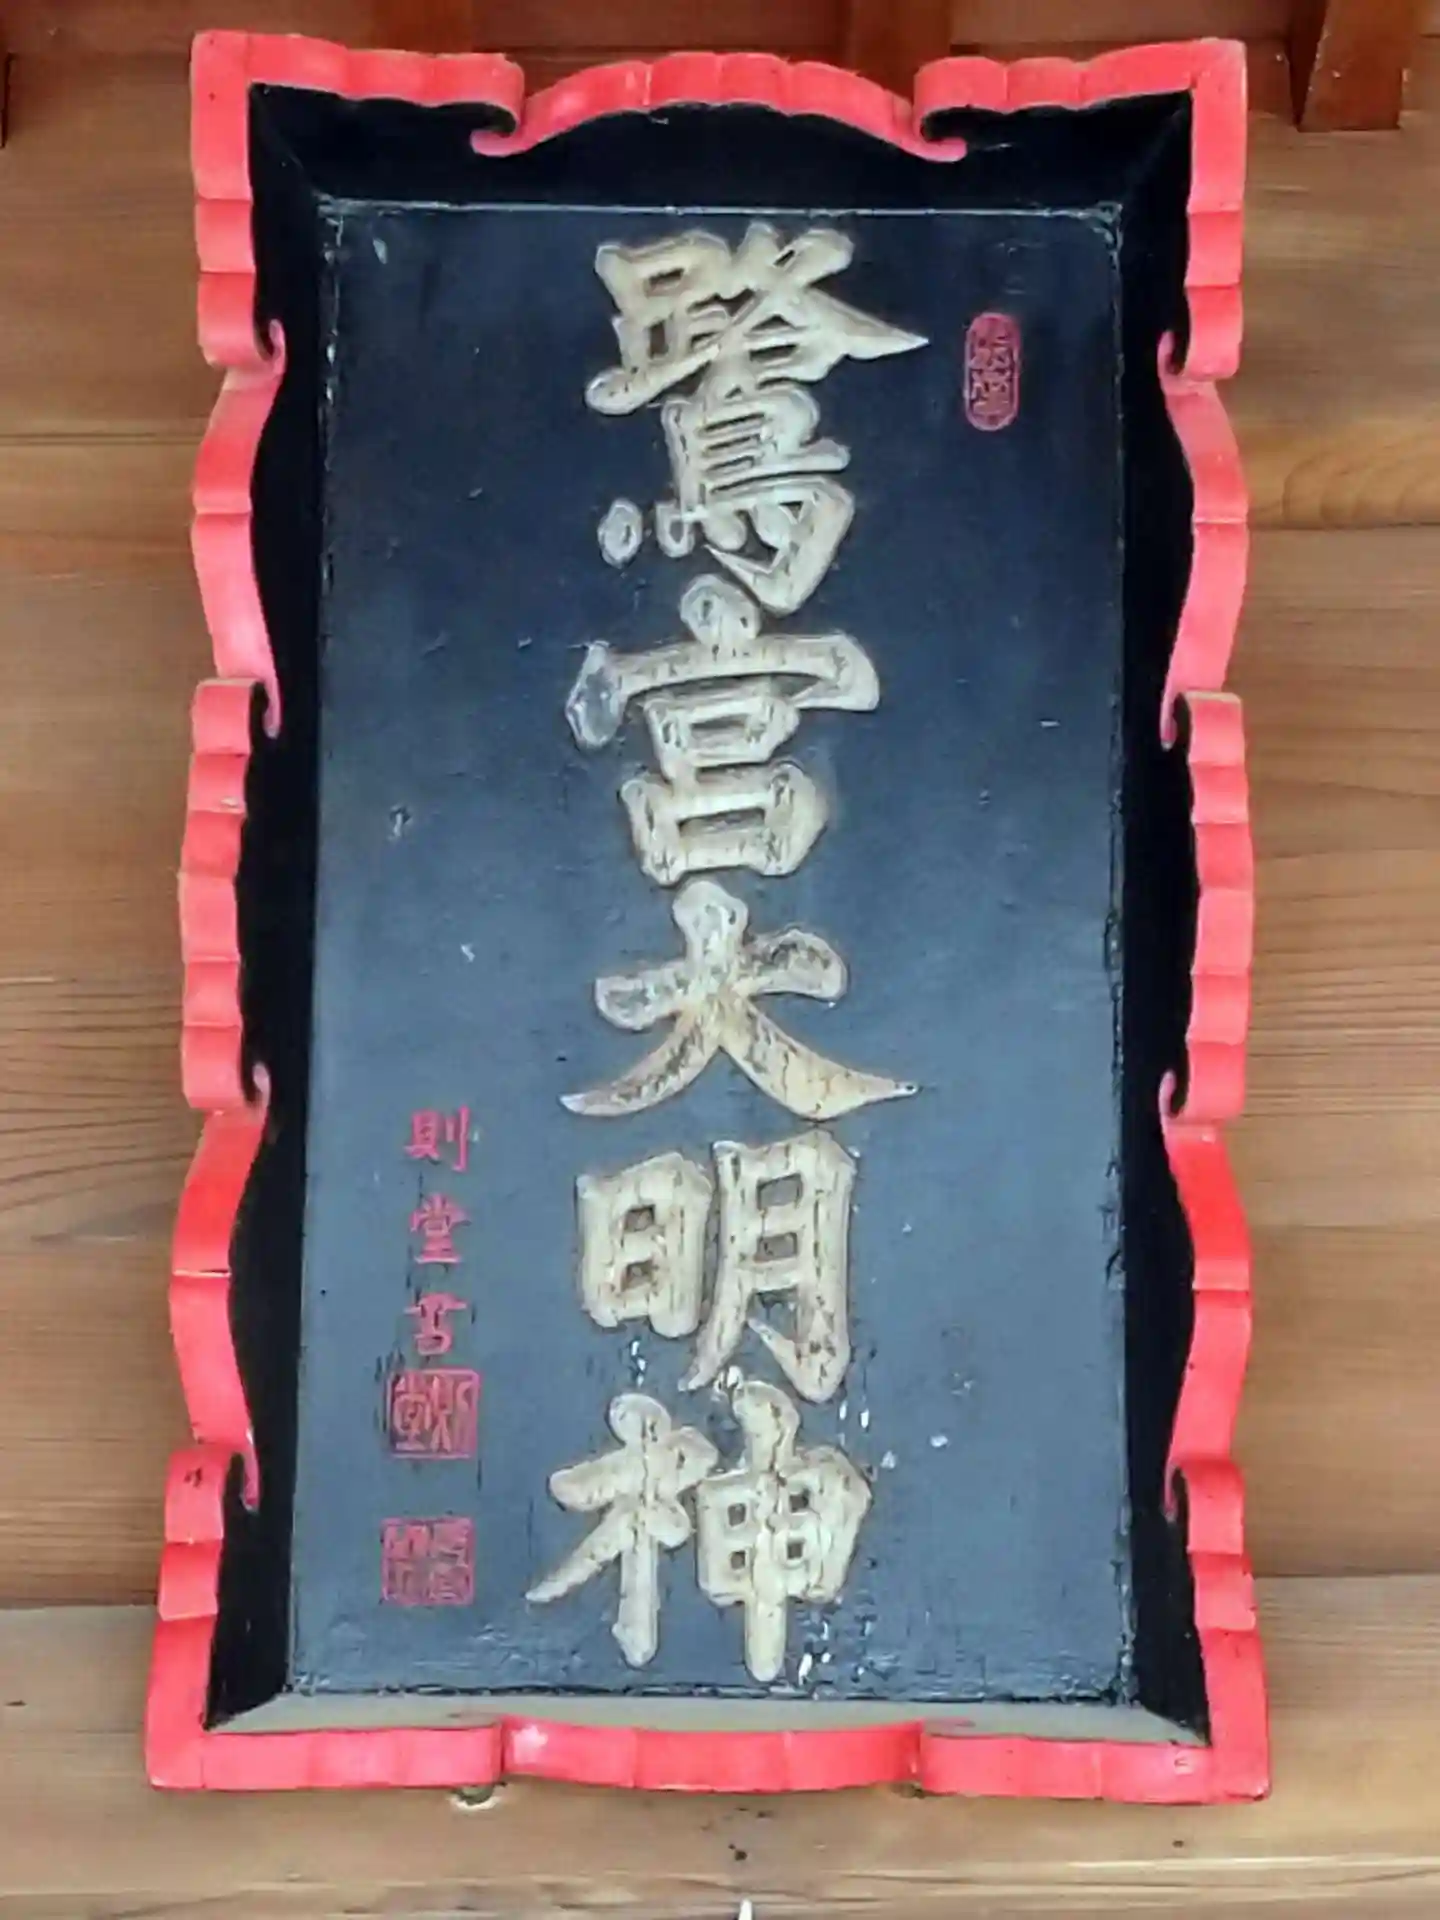 鷺宮大明神
則堂書
則堂